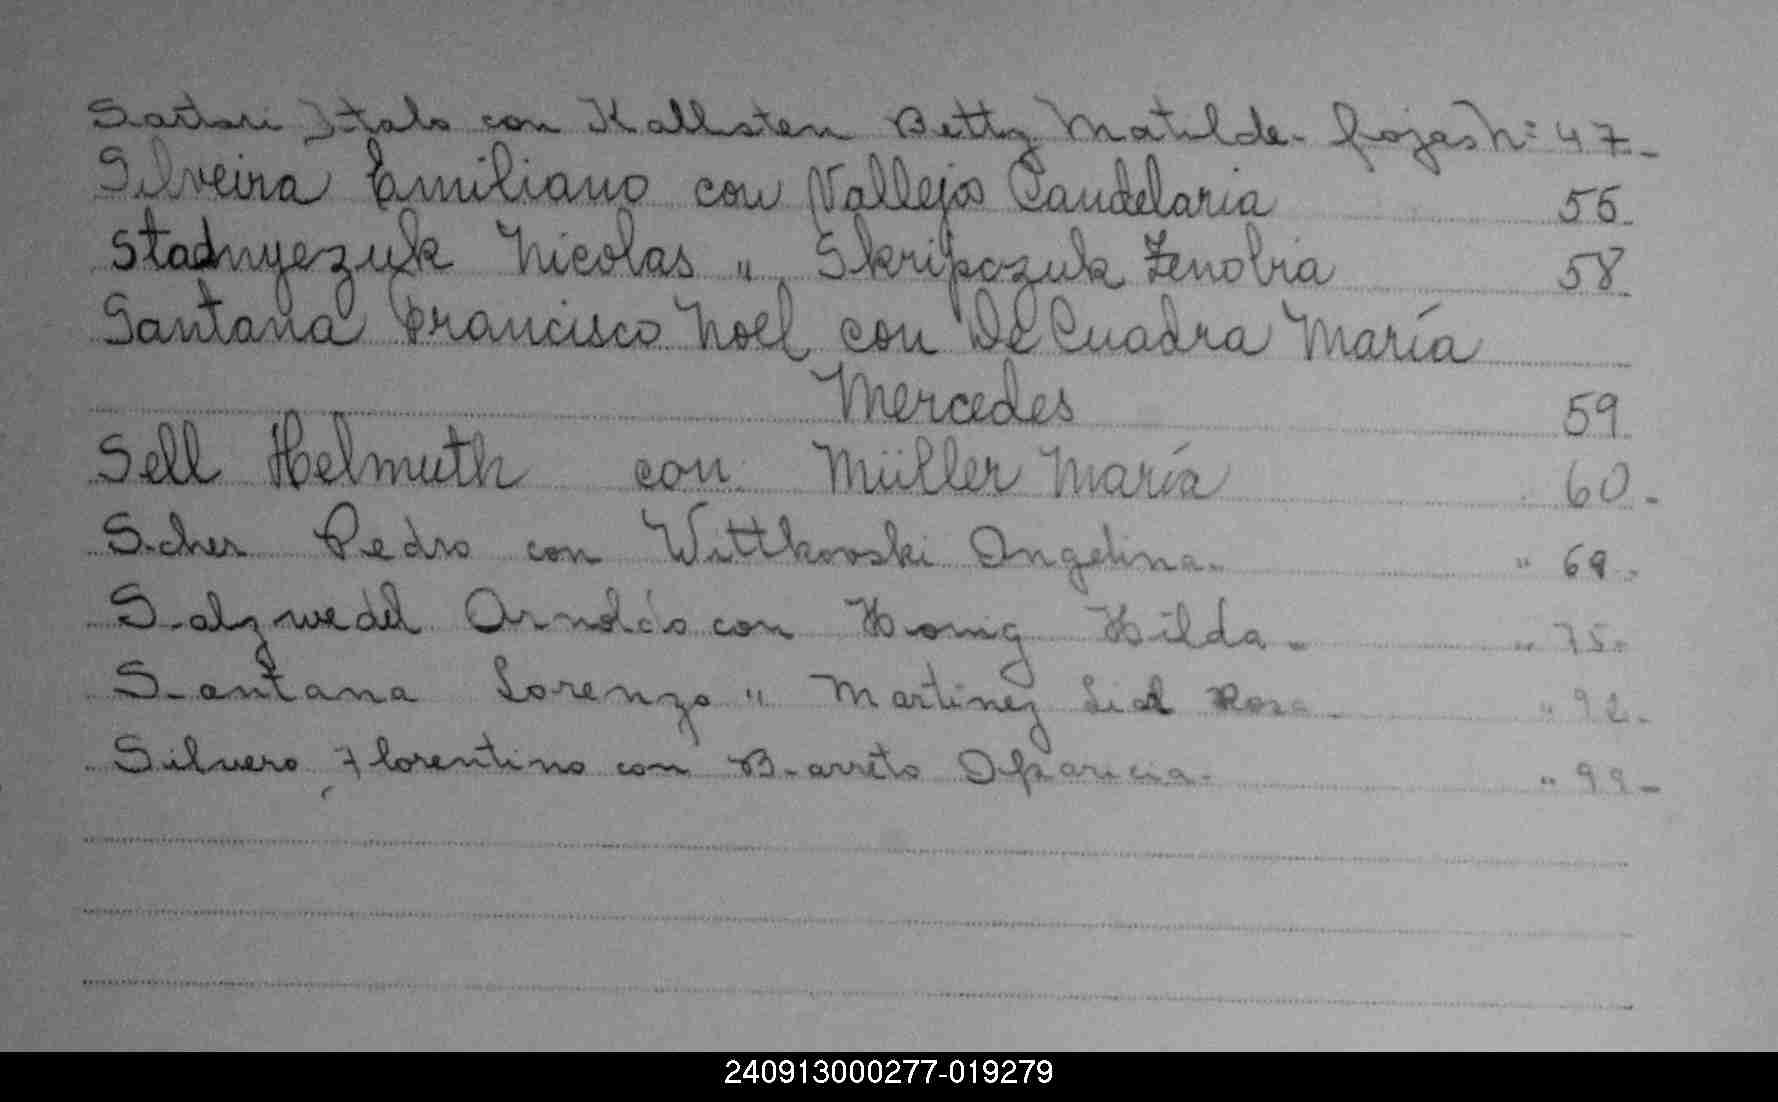 Sartori Italo con Kallsten Betty Matilde - fojas Nº 47 -
Silveira Emiliano con Vallejos Candelaria 56
Stadnyezuk Nicolas " Skripczuk Zenobia 58
Santana Francisco Noel con De Cuadra María
Mercedes 59
Sell Helmuth con Müller María 60 -
Scher Pedro con Wittkovski Angelina - " 69 -
Salzwedel Arnoldo con Honig Hilda - " 75 -
Santana Lorenzo " Martinez Rosa - " 92 -
Silvero Florentino con Barreto Aparicia - " 99 -
240913000277-019279